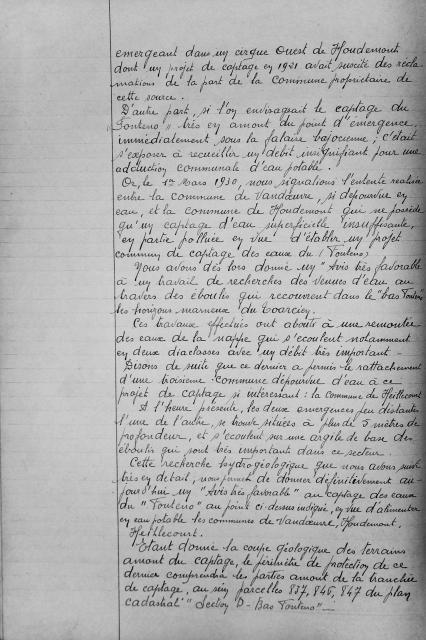 émergeant dans un cirque Ouest de Houdemont
dont un projet de captage en 1921 avait suscité des récla-
mations de la part de la Commune propriétaire de
cette source.
D'autre part, si l'on envisageait le captage du
"Fonteno" très en amont du point d'émergence,
immédiatement sous la falaise bajocienne; c'était
s'exposer à recueillir un débit insignifiant pour une
adduction communale d'eau potable.
Or, le 1er Mars 1930, nous signalions l'entente réalisée
entre la commune de Vandœuvre, si dépourvue en
eau, et la commune de Houdemont qui ne possède
qu'un captage d'eau superficielle insuffisante,
en partie polluée en vue d'établir un projet
commun de captage des eaux du (Fonteno)
Nous avons dès lors donné un "Avis très favorable"
à un travail de recherches des venues d'eau au
travers des éboulis qui recouvrent dans le "bas Fonteno"
les horizons marneux du Toarcien.
Ces travaux effectués ont abouti à une remontée
des eaux de la nappe qui s'écoulent notamment
en deux diaclases avec un débit très important -
Disons de suite que ce dernier a permis le rattachement
d'une troisième commune dépourvue d'eau à ce
projet de captage si intéressant: la commune de Heillecourt
A l'heure présente, les deux émergences peu distantes
l'une de l'autre, se trouvent situées à plus de 5 mètres de
profondeur, et s'écoulent sur une argile de base des
éboulis qui sont très importants dans ce secteur.
Cette recherche hydrogéologique que nous avons suivie
très en détail, nous permet de donner définitivement au-
jourd'hui un "Avis très favorable" au captage des eaux
du "Fonteno" au point ci-dessus indiqué, en vue d'alimenter
en eau potable les communes de Vandœuvre, Houdemont,
Heillecourt.
Etant donné la coupe géologique des terrains
amont du captage, le périmètre de protection de ce
dernier comprendra les parties amont de la tranchée
de captage, au sein parcelles 837, 846, 847 du plan
cadastral "Section D - Bas Fonteno" -